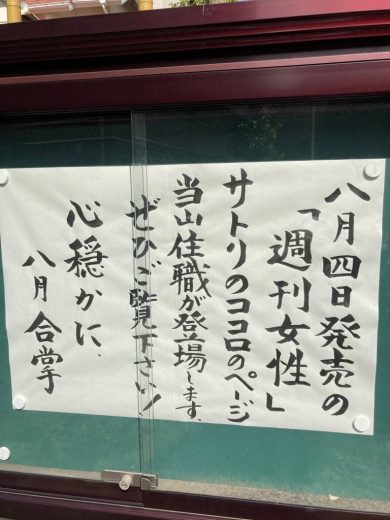 八月四日発売の
「週刊女性」
サトリのココロのページ
当山住職が登場します、
ぜひご覧下さい！
心穏かに、
八月 合掌